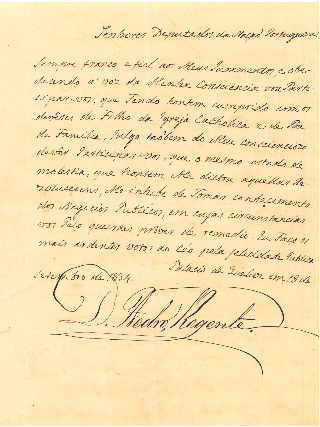 Senhores Deputados da Nação Portugueza
Sempre franco e fiel aos Meus Juramentos, e obe-
decendo á voz da Minha Consciencia vou Parti-
cipar-vos, que Tendo hontem cumprido com os
deveres de Filho da Igreja Catholica e de Pai
de Familia, Julgo taõbem do Meu Consciencioso
dever Participar-vos, que, o mesmo estado de
molestia, que hontem Me dictou aquellas
Me inhibe de Tomar conhecimento
dos Negocios Publicos, em cujas circunstancias
vos Peço queiraes prover de remedio. Eu Faço os
mais ardentes votos ao Céo pela felicidade Publica
Palacio de Queluz em 18 de
Setembro de 1834.
D. Pedro, Regente.